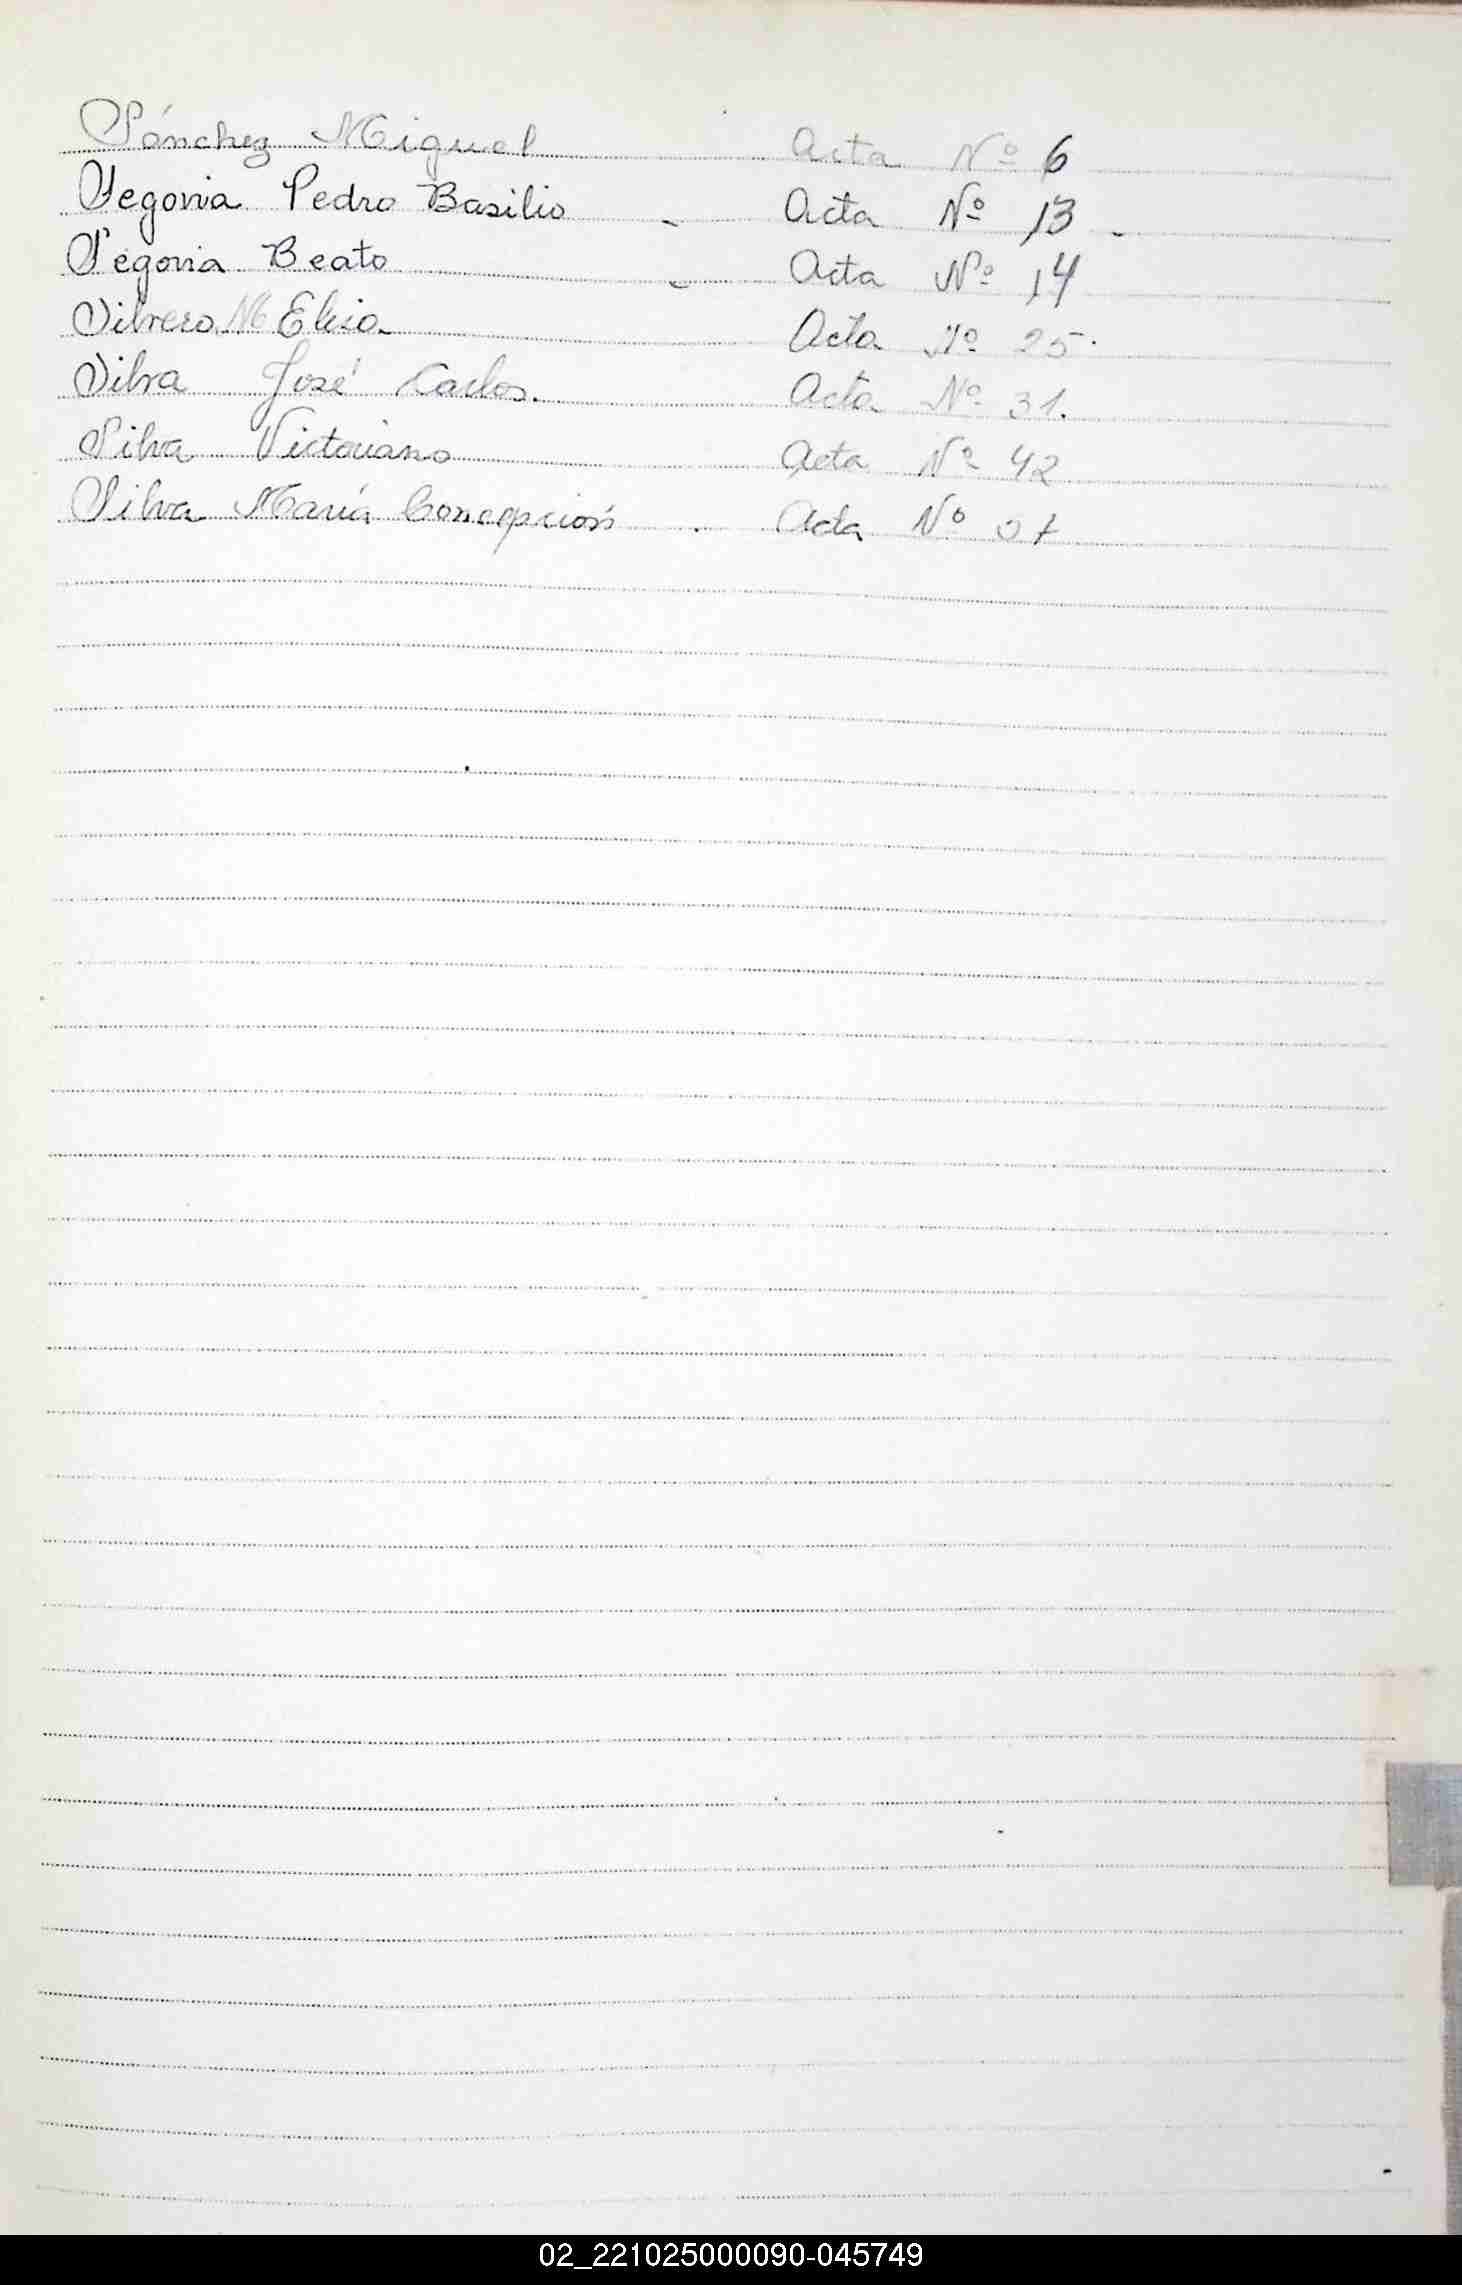 Sánchez Miguel Acta Nº 6
Segovia Pedro Basilio - Acta Nº 13 -
Segovia Beato - Acta Nº 14
Silvero M Elisa Acta Nº 25.
Silva José Carlos. Acta Nº 31.
Silva Victoriano Acta Nº 42
Silva María Concepción . Acta Nº
02_221025000090-045749